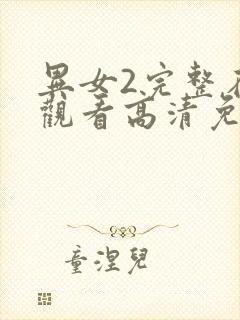 異女2完整
觀看高清免
童涅兒